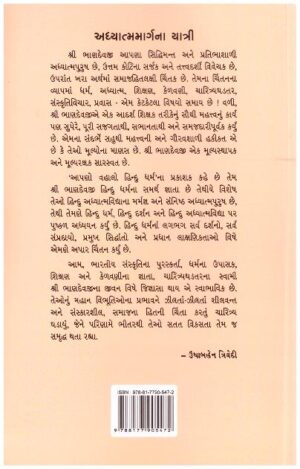 અધ્યાત્મમાર્ગના યાત્રી
શ્રી ભાણદેવજી આપણા સિદ્ધિમન્ત અને પ્રતિભાશાળી
અધ્યાત્મપુરુષ છે, ઉત્તમ કોટિના સર્જક અને તત્ત્વદર્શી વિવેચક છે,
ઉપરાંત ખરા અર્થમાં સમાજહિતલક્ષી ચિંતક છે. તેમના ચિંતનના
વ્યાપમાં ધર્મ, અધ્યાત્મ, શિક્ષણ, કેળવણી, ચારિત્ર્યઘડતર,
સંસ્કૃતિવિચાર, પ્રવાસ - એમ કેટકેટલા વિષયો સમાય છે ! વળી,
શ્રી ભાણદેવજીએ એક આદર્શ શિક્ષક તરીકેનું સૌથી મહત્ત્વનું કાર્ય
પણ સુપેરે, પૂરી સજગતાથી, સભાનતાથી અને સમજદારીપૂર્વક કર્યું
છે. એમના સંદર્ભે સહુથી મહત્ત્વની અને ગૌરવશાળી હકીકત એ
છે કે તેઓ મૂલ્યોના માણસ છે. શ્રી ભાણદેવજી એક મૂલ્યસ્થાપક
અને મૂલ્યરક્ષક સારસ્વત છે.
'આપણો વહાલો હિન્દુ ધર્મ'ના પ્રકાશક કહે છે તેમ
શ્રી ભાણદેવજી હિન્દુ ધર્મના સમર્થ જ્ઞાતા છે તેથીયે વિશેષ
તેઓ હિન્દુ અધ્યાત્મવિદ્યાના મર્મજ્ઞ અને સંનિષ્ઠ અધ્યાત્મપુરુષ છે,
તેથી તેમણે હિન્દુ ધર્મ, હિન્દુ દર્શન અને હિન્દુ અધ્યાત્મવિદ્યા પર
પુષ્કળ અધ્યયન કર્યું છે. હિન્દુ ધર્મનાં લગભગ સર્વ દર્શનો, સર્વ
સંપ્રદાયો, પ્રમુખ સિદ્ધાંતો અને પ્રધાન લાક્ષણિકતાઓ વિષે
એમણે અપાર ચિંતન કર્યું છે.
આમ, ભારતીય સંસ્કૃતિના પુરસ્કર્તા, ધર્મના ઉપાસક,
શિક્ષણ અને કેળવણીના જ્ઞાતા, ચારિત્ર્યઘડતરના સ્વામી
શ્રી ભાણદેવજીના જીવન વિષે જિજ્ઞાસા થાય એ સ્વાભાવિક છે.
તેઓનું મહાન વિભૂતિઓના પ્રભાવને ઝીલતાં-ઝીલતાં શીલવન્ત
અને સંસ્કારશીલ, સમાજના હિતની ચિંતા કરતું ચારિત્ર્ય
ઘડાયું, જેને પરિણામે ભીતરથી તેઓ સતત વિકસતા તેમ જ
સમૃદ્ધ થતા રહ્યા.
- ઉષાબહેન ત્રિવેદી
ISBN : 978-81-7790-547-2
9 788177 905472